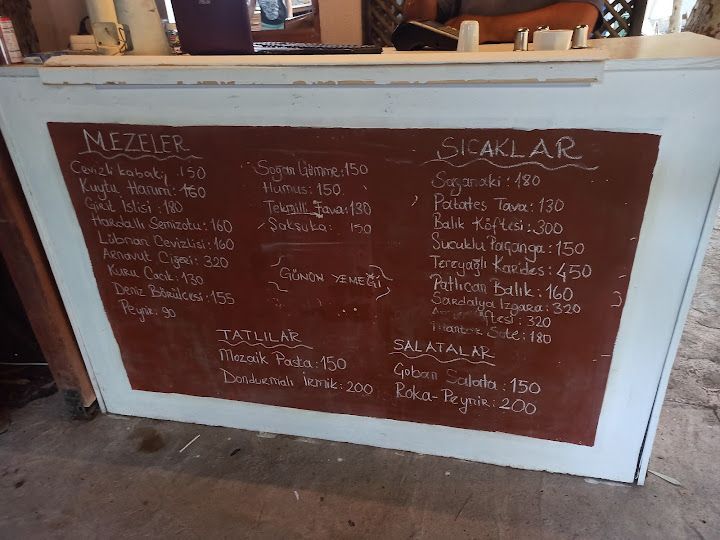 MEZELER
Cevizli kabak 150
Kuytu Humus: 160
Girit İslisi: 180
Hardallı Semizotu: 160
Lübnan Cevizlisi: 160
Arnavut Ciğeri: 320
Kuru Cacık: 130
Deniz Börülcesi: 155
Peynir: 90
Soğan Gömme: 150
Humus: 150
Tekmilli Fava: 130
Şakşuka: 150
GÜNÜN YEMEĞİ
SICAKLAR
Saganaki: 180
Patates Tava: 130
Balık Köftesi: 300
Sucuklu Paçanga: 150
Tereyağlı Karides: 450
Patlıcan Balık: 160
Sardalya Izgara: 320
320
Sote: 180
TATLILAR
Mozaik Pasta: 150
Dondurmalı İrmik: 200
SALATALAR
Çoban Salata: 150
Roka-Peynir: 200